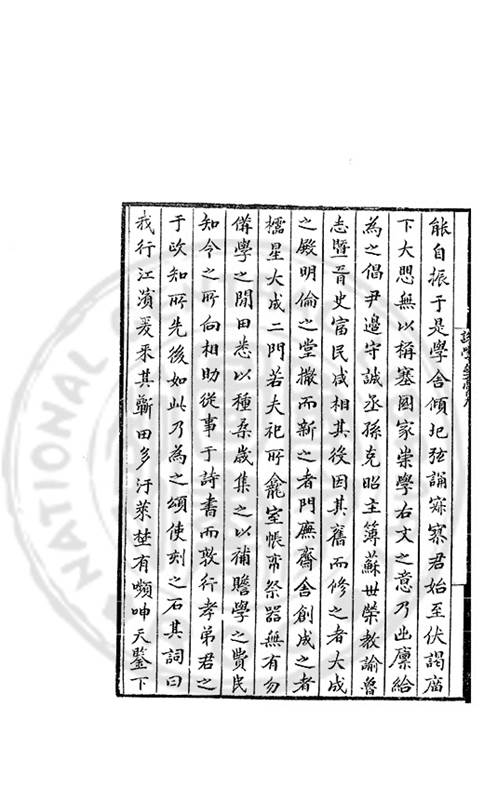 能自振于是學舍傾圮弦誦寂寥君始至伏謁廟
下大思無以稱塞國家崇學右文之意乃出廩給
為之倡尹邊守誠丞孫克昭主簿蘇世榮教諭魯
志暨胥史富民咸相其役因其舊而修之者大成
之殿明倫之堂撤而新之者門廡齋舍創成之者
櫺星大成二門若夫祀所龕室帳帟祭器無有勿
備學之閒田悉以種桑歲集之以補贍學之費民
知令之所向相助從事于詩書而敦行孝弟君之
于政知所先後如此乃為之頌使刻之石其詞曰
我行江濱爰釆其蘄田多汙萊埜有嚬呻天鑒下
NATIONAL